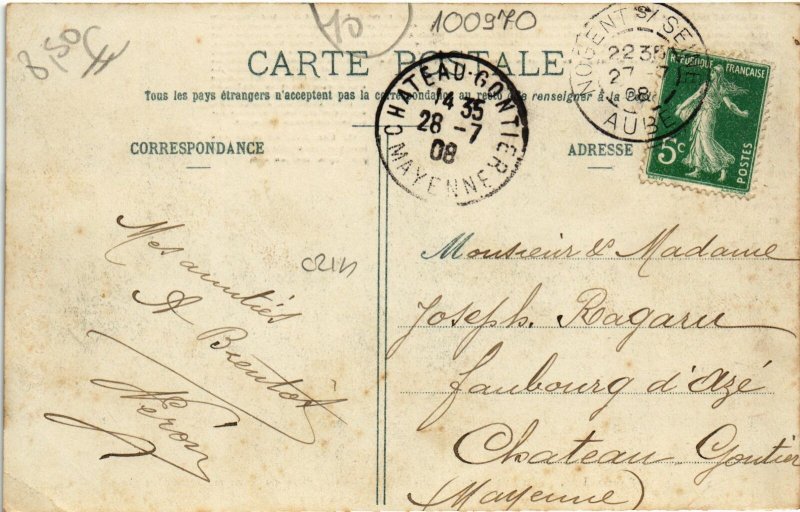 8,50
100970
CARTE POSTALE
Tous les pays étrangers n'acceptent pas la correspondance au recto (Se renseigner à la Poste)
CORRESPONDANCE
ADRESSE
CHATEAU-GONTIER
14 35
28 -7
08
MAYENNE
NOGENT S/ SEINE
22 35
27 -7
08
AUBE
REPUBLIQUE FRANÇAISE
5c
POSTES
Mes amitiés
A Bientôt
Néron
CRIN
Monsieur & Madame
Joseph Ragaru
faubourg d'Azé
Chateau Gontier
(Mayenne)